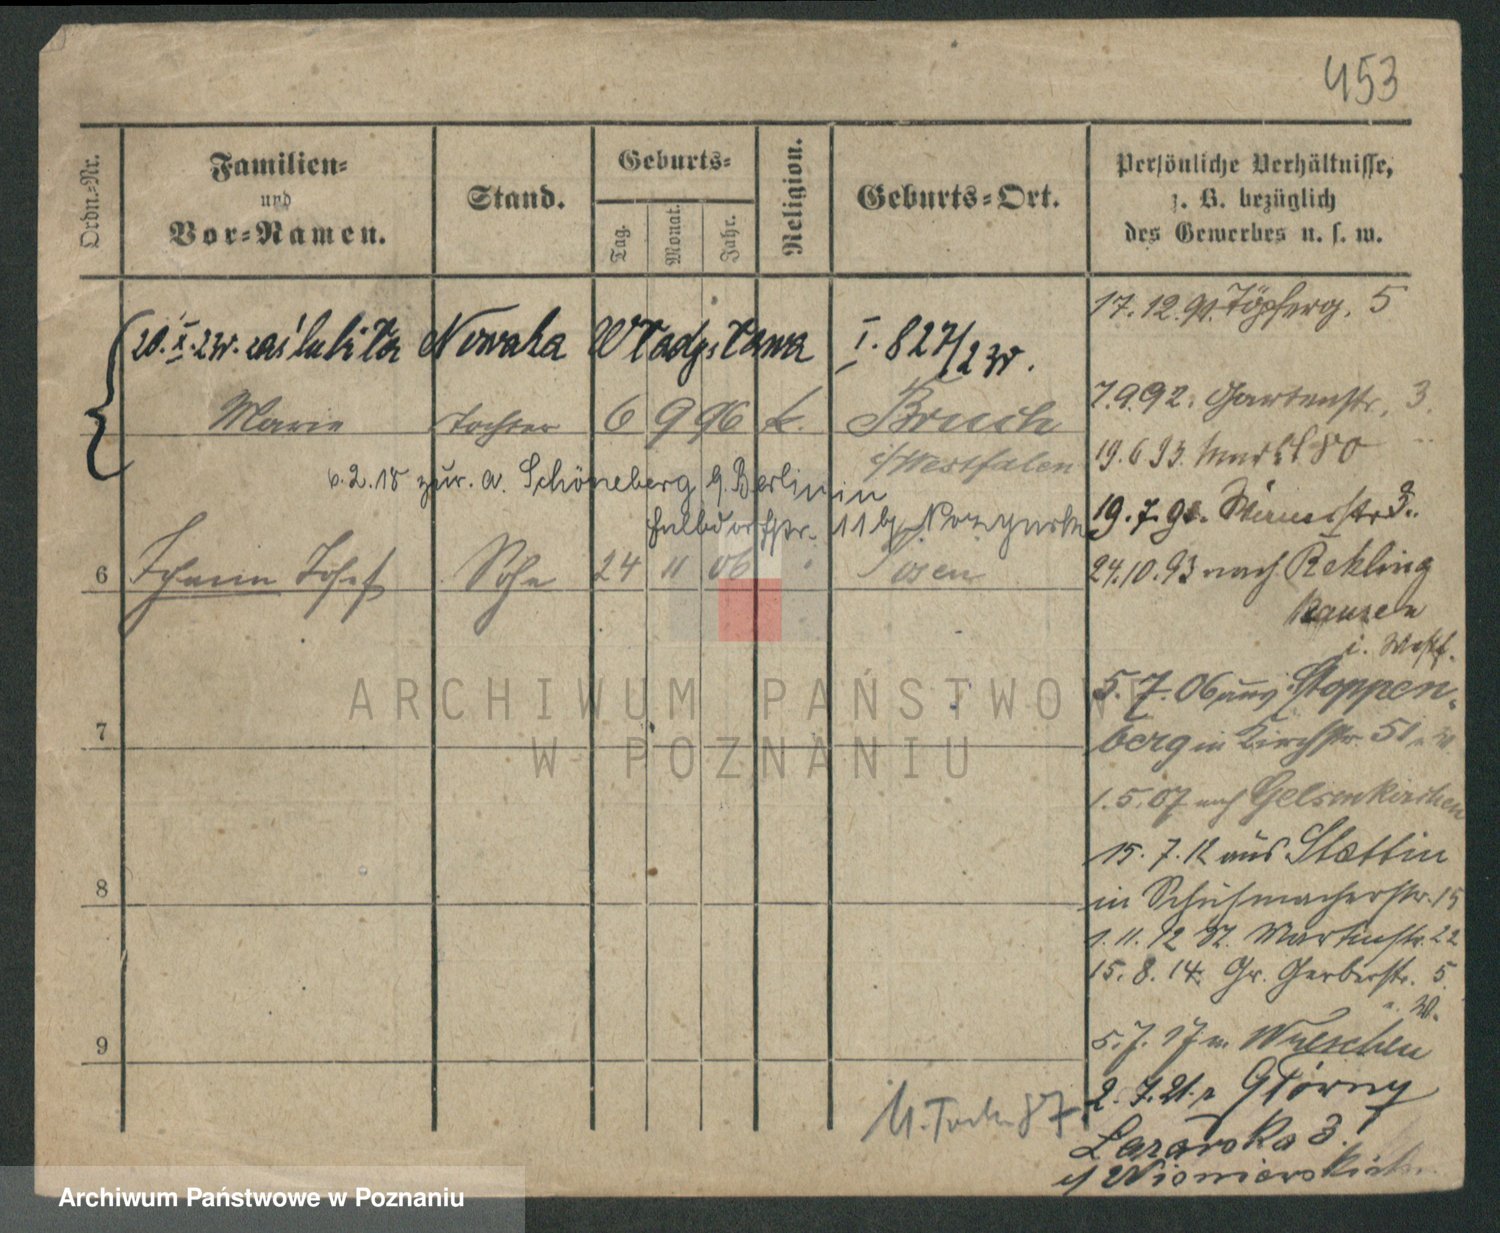 453
Ordn.-Nr.
Familien-
und
Vor-Namen.
Stand.
Geburts-
Tag.
Monat.
Jahr.
Religion.
Geburts-Ort.
Persönliche Verhältnisse,
z. B. bezüglich
des Gewerbes u. s. w.
17.12.91. Töpferg. 5
20. X. 23r. zaślubiła Nowaka Władysława I. 827/23r.
7.9.92. Gartenstr. 3.
Marie Tochter 6 9 96 k. Bruch
i/Westfalen
19.6.93. 80
6.2.18 zur. a. Schöneberg b. Berlin in
11 b
19.7.93. 3.
6 Johann Josef Sohn 24 11 06 Posen
24.10.93 nach Rekling
hausen
i. Westf.
5.7.06 aus Stoppen-
berg in Kirchstr. 51
7
1.5.07 nach Gelsenkirchen
15.7.12 aus Stettin
8
in Schuhmacherstr. 15
1.11.12 St. Martinstr. 22
15.8.14. Gr. Gerberstr. 5
5.7.17 n. Wreschen
9
2.7.21. Górny
87
Łazarska 3.
ARCHIWUM PAŃSTWOWE
W POZNANIU
Archiwum Państwowe w Poznaniu